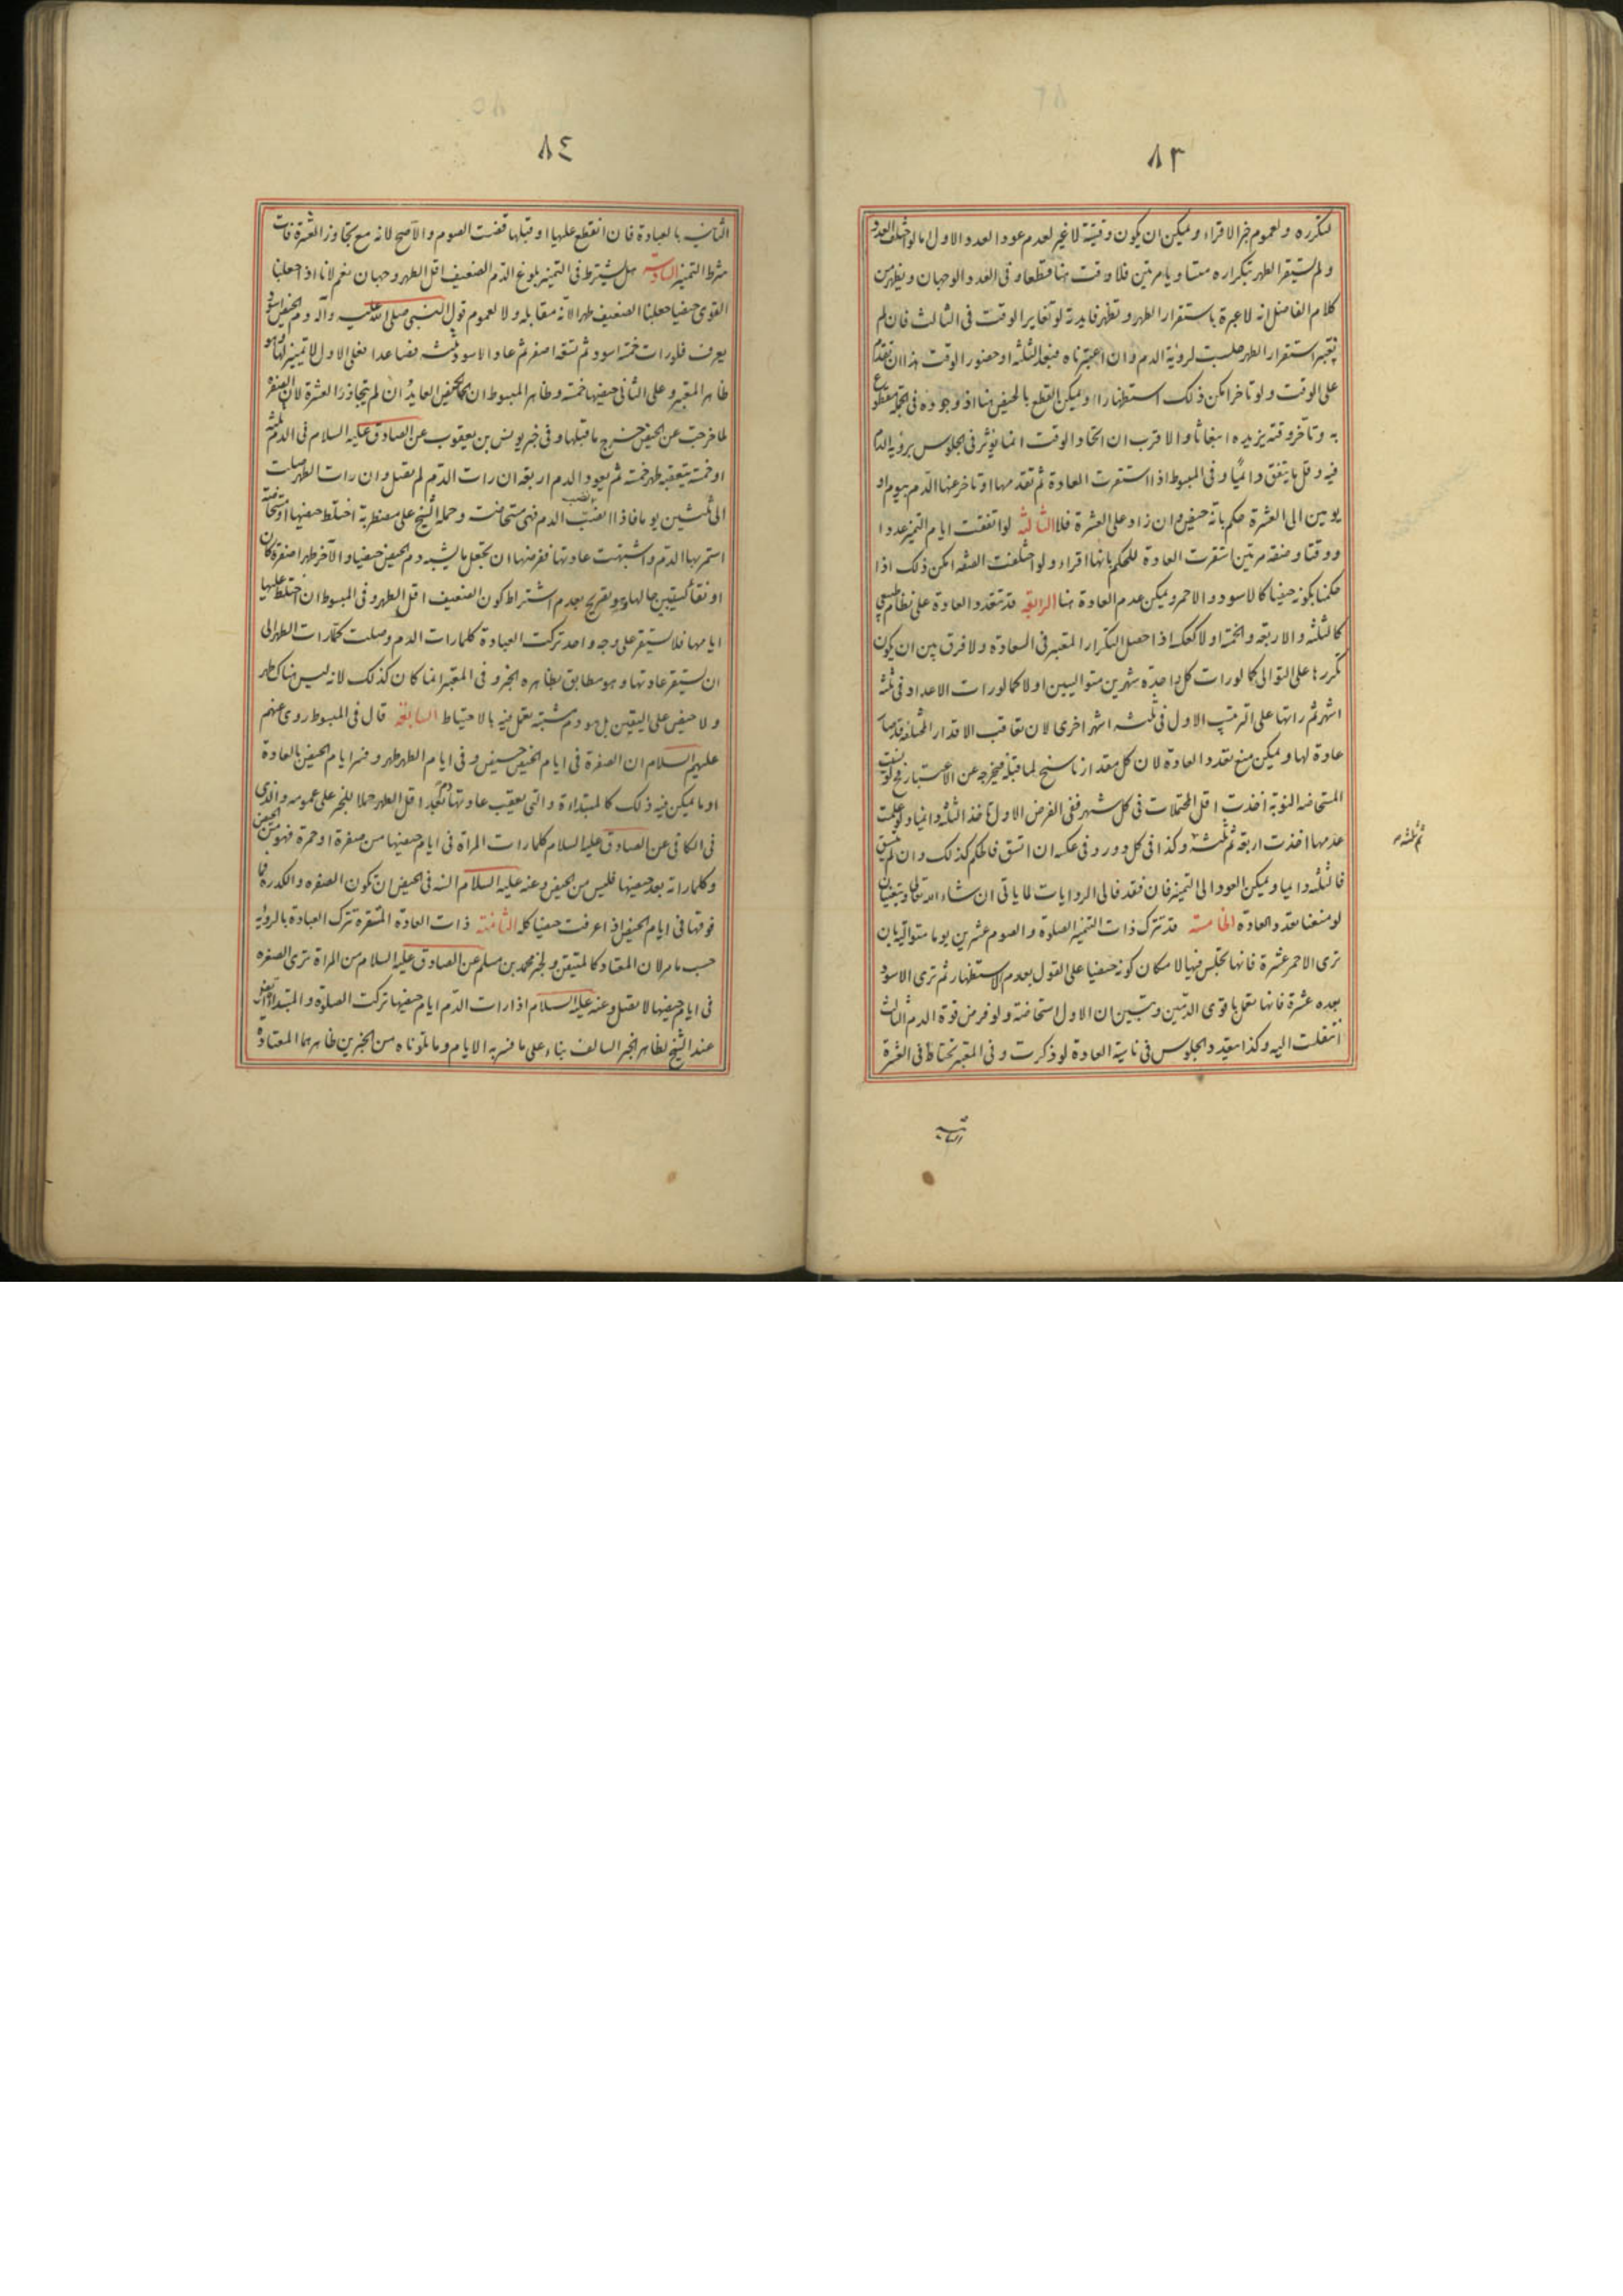 ٨٣
لتكرره ولعموم خبر الاقراء ويمكن ان يكون وقتية لا غير لعدم عود العدد الاول ما لو اختلف العدد
ولم يستقر الطهر بتكراره متساويا مرتين فلا وقت هنا قطعا وفى العدد الوجهان ويظهر من
كلام الفاضل انه لا عبرة باستقرار الطهر وتظهر فايدته لو تغاير الوقت فى الثالث فان لم
نعتبر استقرار الطهر جلست لروية الدم وان اعتبرناه فبعد الثلثه او حضور الوقت هذا ان تقدم
على الوقت ولو تاخر امكن ذلك استظهارا ويمكن القطع بالحيض هنا اذ وجوده فى الجملة مقطوع
به وتاخر وقته يزيده انبعاثا والاقرب ان اتحاد الوقت انما يؤثر فى الجلوس برؤية الدم
فيه وقل ما يتفق دائما وفى المبسوط اذا استقرت العادة ثم تقدمها او تاخر عنها الدم بيوم او
يومين الى العشرة حكم بانه حيض وان زاد على العشرة فلا الثالثة لو اتفقت ايام التميز عددا
ووقتا وصفه مرتين استقرت العادة للحكم بانها اقراء ولو اختلفت الصفه امكن ذلك اذا
حكمنا بكونه حيضا كالاسود والاحمر ويمكن عدم العادة هنا الرابعة قد تتعدد العادة على نظام طبيعى
كالثلثه والاربعه والخمسة او لا كعكسه اذا حصل التكرار المعتبر فى العادة ولا فرق بين ان يكون
تكررها على التوالى كما لو رات كل واحدة شهرين متواليين او لا كما لو رات الاعداد فى ثلثه
اشهر ثم راتها على الترتيب الاول فى ثلثه اشهر اخرى لان تعاقب الاقدار المختلفة قد صار
عادة لها ويمكن منع تعدد العادة لان كل مقدار ناسخ لما قبله فيخرجه عن الاعتبار فح لو نسيت
المستحاضه النوبة اخذت اقل المحتملات فى كل شهر ففى الفرض الاول تاخذ الثلثه دائما ولو علمت
عدمها اخذت اربعه ثم ثلثه وكذا فى كل دور وفى عكسه ان اتسق فالحكم كذلك وان لم يتسق
فالثلثه دائما ويمكن العود الى التميز فان فقد فالى الروايات لما ياتى ان شاء الله تعالى ويتعينان
لو منعنا تعدد العادة الخامسة قد تترك ذات التميز الصلوة والصوم عشرين يوما متوالية بان
ترى الاحمر عشرة فانها تجلس فيها لامكان كونه حيضا على القول بعدم الاستظهار ثم ترى الاسود
بعده عشرة فانها تعمل باقوى الدمين وتبين ان الاول استحاضة ولو فرض قوة الدم الثالث
انتقلت اليه وكذا يتعدد الجلوس فى ناسية العادة لو ذكرت وفى المعتبر تحتاط فى العشرة
ثم ثلثه
الثانية
٨٤
الثانية بالعبادة فان انقطع عليها او قبلها قضت الصوم والاصح لا نه مع تجاوز العشرة فات
شرط التميز السادسة هل يشترط فى التميز بلوغ الدم الضعيف اقل الطهر وجهان نعم لانا اذا جعلنا
القوى حيضا جعلنا الضعيف طهرا لانه مقابله ولا لعموم قول النبى صلى الله عليه وآله دم الحيض اسود
يعرف فلو رات خمسة اسود ثم تسعه اصفر ثم عاد الاسود ثلثه فصاعدا فعلى الاول لا تميز لها وهو
ظاهر المعتبر وعلى الثانى حيضها خمسة وظاهر المبسوط ان الحيض العايد ان لم يتجاوز العشرة لان الصفره
لما خرجت عن الحيض خرج ما قبلها وفى خبر يونس بن يعقوب عن الصادق عليه السلام فى الدم ثلثه
او خمسة يتعقبه طهر خمسة ثم يعود الدم اربعه ان رات الدم لم تصل وان رات الطهر صلت
الى ثلثين يوما فاذا انصب الدم فهى مستحاضة وحمله الشيخ على مضطربة اختلط حيضها او مستحاضة
استمر بها الدم واشتبهت عادتها ففرضها ان تجعل ما يشبه دم الحيض حيضا والآخر طهرا صفرة كان
او نقاء ليستبين حالها وهو تصريح بعدم اشتراط كون الضعيف اقل الطهر وفى المبسوط ان اختلط عليها
ايامها فلا تستقر على وجه واحد تركت العبادة كلما رات الدم وصلت كلما رات الطهر الى
ان تستقر عادتها وهو مطابق لظاهر الخبر وفى المعتبر انما كان كذلك لانه ليس هناك طهر
ولا حيض على اليقين بل هو دم مشتبه تعمل فيه بالاحتياط السابعة قال فى المبسوط روى عنهم
عليهم السلام ان الصفرة فى ايام الحيض حيض وفى ايام الطهر طهر وفسر ايام الحيض بالعادة
او ما يمكن فيه ذلك كالمبتدأة والتى يعقب عادتها دم بعد اقل الطهر حملا للخبر على عمومه والذى
فى الكافى عن الصادق عليه السلام كلما رات المراة فى ايام حيضها من صفرة او حمرة فهو من الحيض
وكلما راته بعد حيضها فليس من الحيض وعنه عليه السلام السنه فى الحيض ان تكون الصفره والكدرة فما
فوقها فى ايام الحيض اذا عرفت حيضا كله الثامنة ذات العادة المستقرة تترك العبادة بالروية
حسب ما مر لان المعتاد كالمتيقن ولخبر محمد بن مسلم عن الصادق عليه السلام من المراة ترى الصفره
فى ايام حيضها لا تصلى وعنه عليه السلام اذا رات الدم ايام حيضها تركت الصلوة والمبتداة
عند الشيخ لظاهر الخبر السالف بناء على ما فسر به الايام وما تلوناه من الخبرين ظاهرهما المعتادة